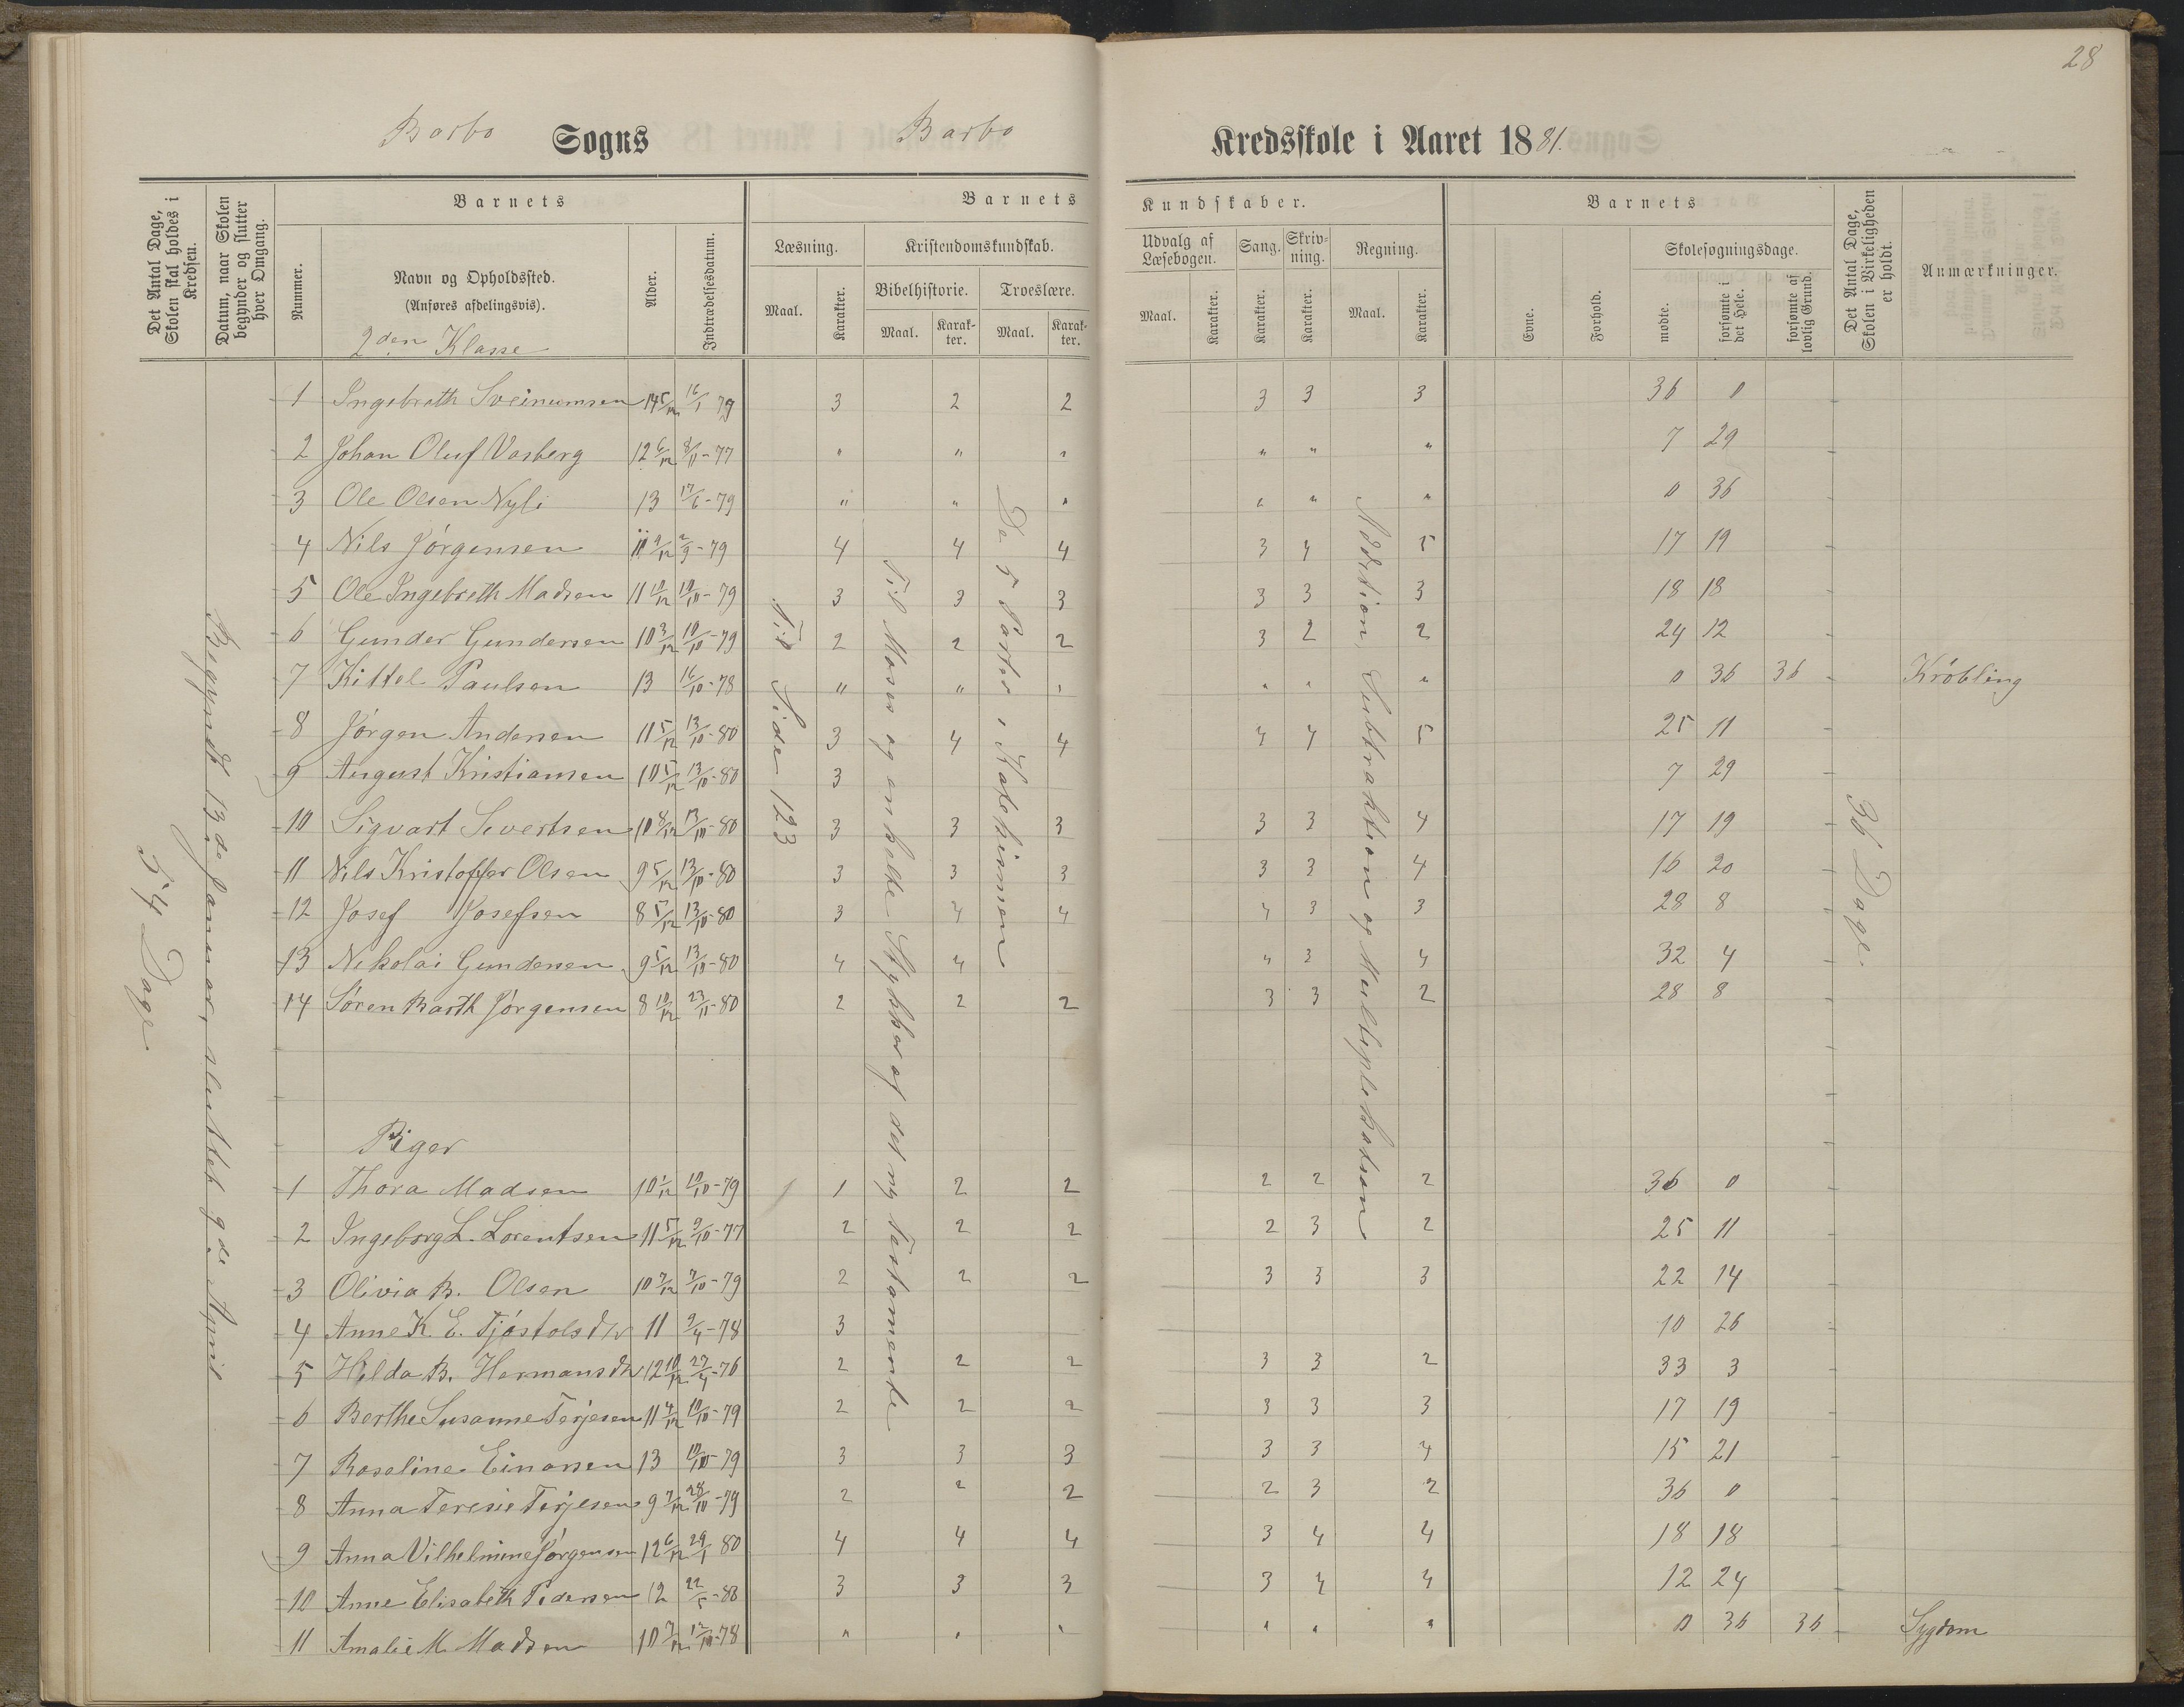 28
Barbo Sogns Barbo Kredsskole i Aaret 1881.
Det Antal Dage, Skolen skal holdes i Kredsen.
Datum, naar Skolen begynder og slutter hver Omgang.
Barnets
Nummer.
Navn og Opholdssted.
(Anføres afdelingsvis).
2den Klasse
Alder.
Indtrædelsesdatum.
Barnets Kundskaber.
Læsning.
Maal. Karakter.
Kristendomskundskab.
Bibelhistorie. Troeslære.
Maal. Karakter. Maal. Karakter.
Udvalg af Læsebogen.
Maal. Karakter.
Sang.
Karakter.
Skrivning.
Karakter.
Regning.
Maal. Karakter.
Barnets
Evne.
Forhold.
Skolesøgningsdage.
mødte.
forsømte i det Hele.
forsømte af lovlig Grund.
Det Antal Dage, Skolen i Virkeligheden er holdt.
Anmærkninger.
54 Dage
Begyndt 13de Januar, sluttet 9de April
Til Side 123
Til Moses og enkelte Stykker af det ny Testamente
De 5 Parter i Katekismen
Addition, Subtraktion og Multiplikation
36 Dage
1 Ingebreth Sveinumsen 14 5/12 16/1 79 3 2 2 3 3 3 36 0
2 Johan Oluf Vasberg 12 6/12 8/11-77 " " " " " " 7 29
3 Ole Olsen Nyli 13 17/6-79 " " " " " " 0 36
4 Nils Jørgensen 11 9/12 2/9-79 4 4 4 3 4 5 17 19
5 Ole Ingebreth Madsen 11 10/12 10/10-79 3 3 3 3 3 3 18 18
6 Gunder Gundersen 10 3/12 10/10-79 2 2 2 3 2 2 24 12
7 Kittel Paulsen 13 16/10-78 " " " " " " 0 36 36 Krøbling
8 Jørgen Andersen 11 5/12 13/10-80 3 4 4 4 4 5 25 11
9 August Kristiansen 10 5/12 13/10-80 3 7 29
10 Sigvart Sivertsen 10 8/12 13/10-80 3 3 3 3 3 4 17 19
11 Nils Kristoffer Olsen 9 5/12 13/10-80 3 3 3 3 3 4 16 20
12 Josef Josefsen 8 5/12 13/10-80 3 4 4 4 3 3 28 8
13 Nikolai Gundersen 9 5/12 13/10-80 4 4 4 3 4 32 4
14 Søren Barth Jørgensen 8 10/12 23/11-80 2 2 2 3 3 2 28 8
Piger
1 Thora Madsen 10 1/12 10/10-79 1 2 2 2 2 2 36 0
2 Ingeborg L. Lorentsen 11 5/12 9/10-77 2 2 2 2 3 2 25 11
3 Olivia B. Olsen 10 7/12 7/10-79 2 2 2 3 3 3 22 14
4 Anne K. E. Tjøstolsdtr 11 9/4-78 3 10 26
5 Hilda B. Hermansdtr 12 10/12 27/4-76 2 2 2 3 3 2 33 3
6 Berthe Susanne Terjesen 11 4/12 10/10-79 2 2 2 3 3 3 17 19
7 Roseline Einarsen 13 10/10-79 3 3 3 3 3 4 15 21
8 Anna Teresie Terjesen 9 7/12 28/10-79 2 2 2 2 3 2 36 0
9 Anna Vilhelmine Jørgensen 12 6/12 29/1 80 4 4 4 3 4 4 18 18
10 Anne Elisabeth Pedersen 12 22/5-80 3 3 3 3 4 4 12 24
11 Amalie M. Madsen 10 7/12 12/10-78 " " " " " " 0 36 36 Sygdom